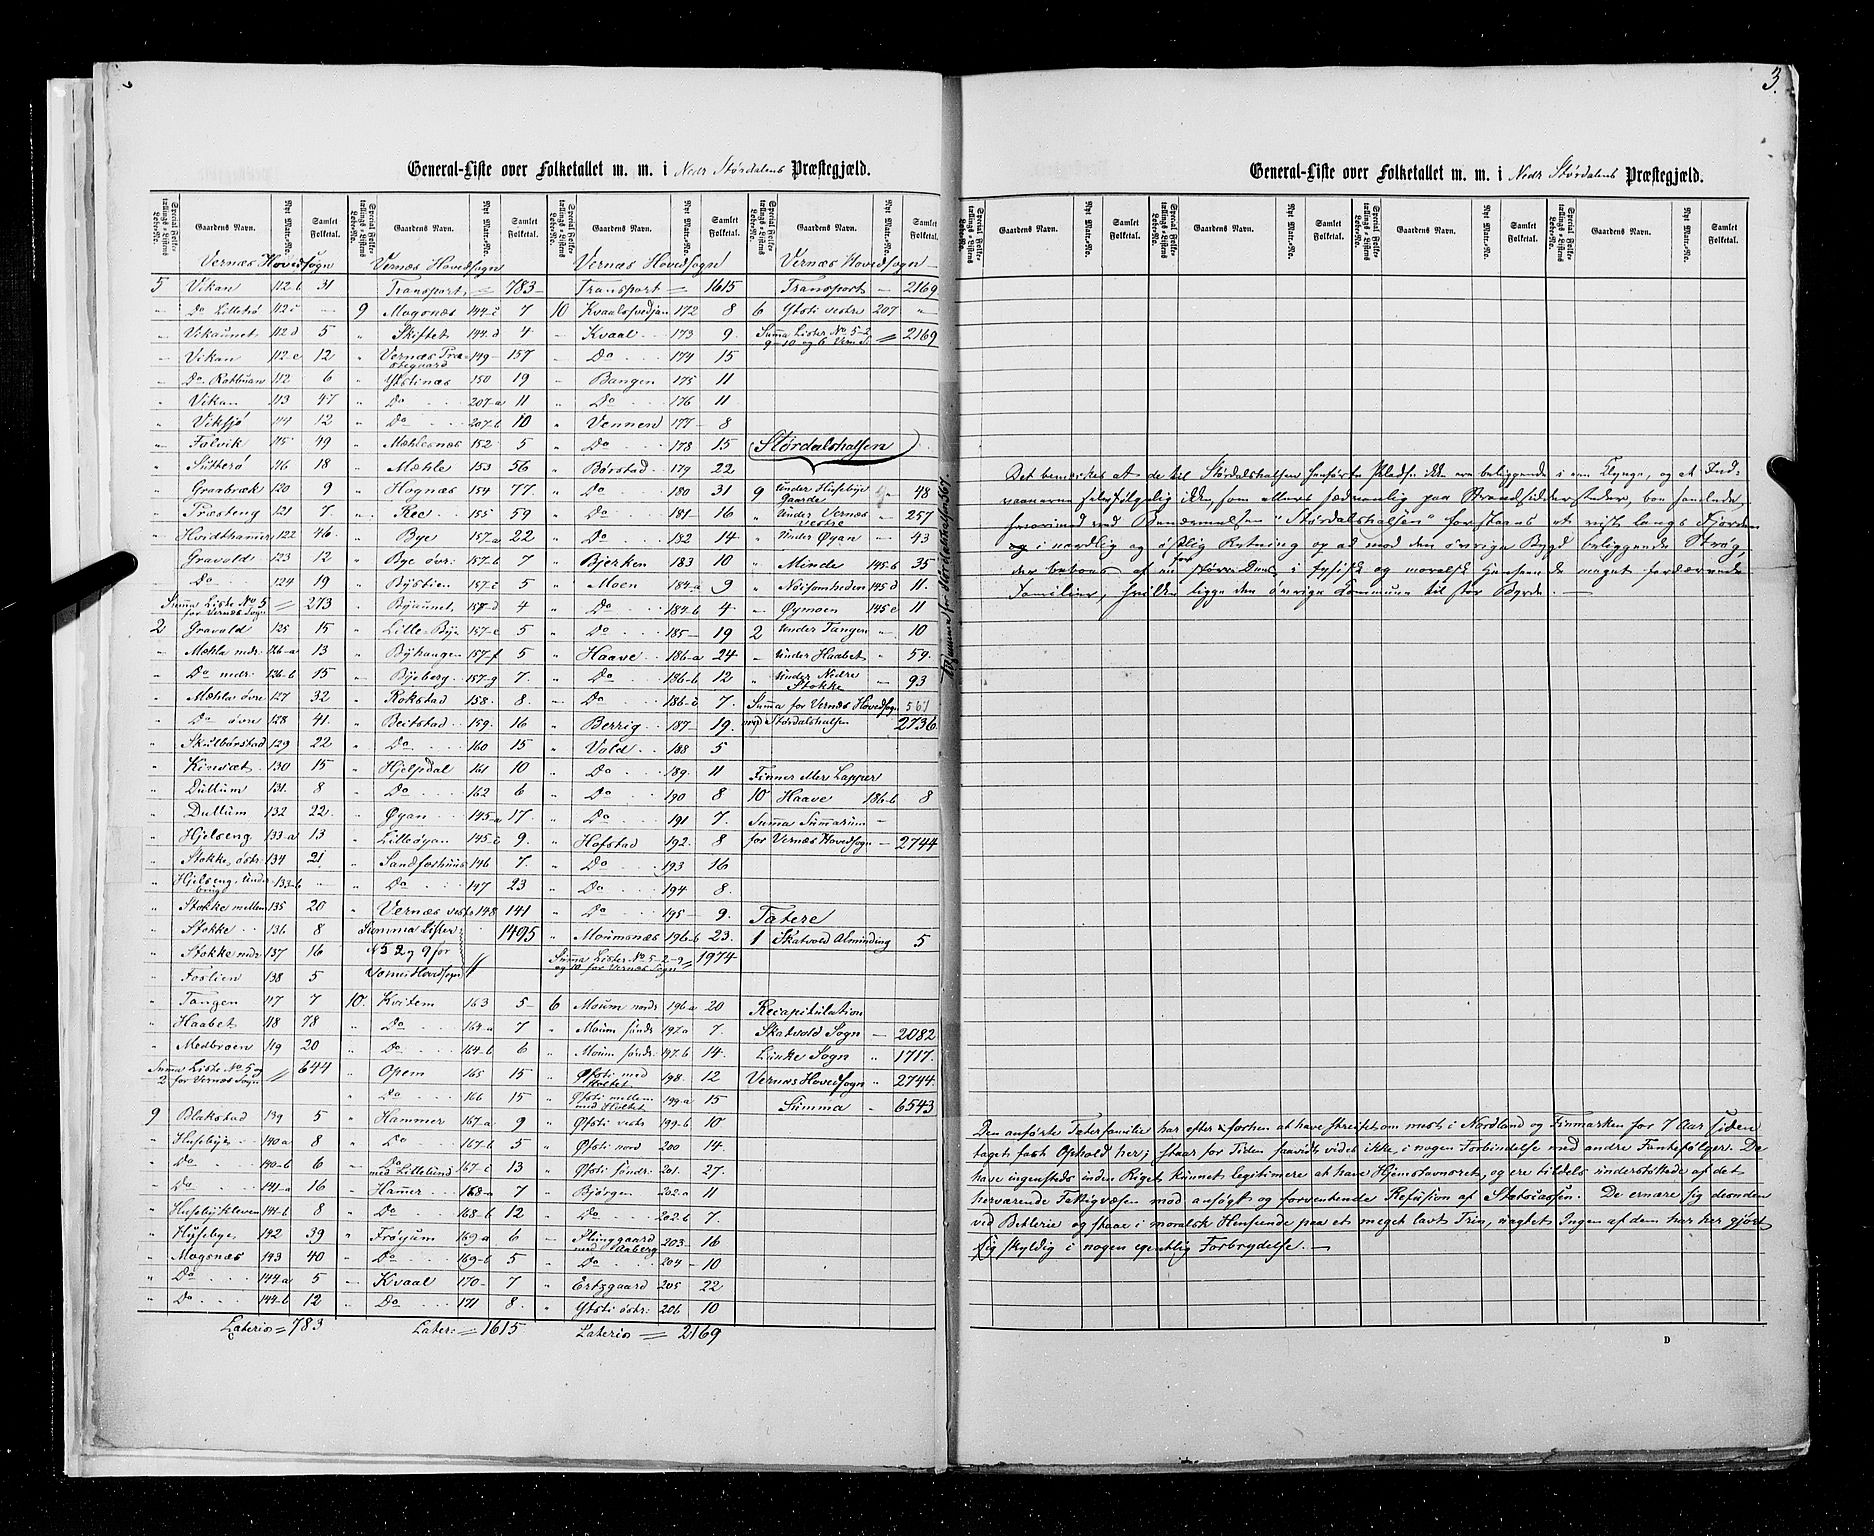 3.
General-Liste over Folketallet m. m. i Nedr Stördalens Præstegjæld.
Special Folketællings-Listens Løbe-No. Gaardens Navn. Nyt Matr.-No. Samlet Folketal. Special Folketællings-Listens Løbe-No. Gaardens Navn. Nyt Matr.-No. Samlet Folketal. Special Folketællings-Listens Løbe-No. Gaardens Navn. Nyt Matr.-No. Samlet Folketal. Special Folketællings-Listens Løbe-No. Gaardens Navn. Nyt Matr.-No. Samlet Folketal.
Vernæs Hovedsogn
5 Vikan 112-b 31
" Do Lilletrø 112 c
" Vikaunet 112 d 5
" Vikan 112-e 12
" Do Rotbuan 112 6
" Vikan 113 47
" Viksjø 114 12
" Fælvik 115 49
" Sutterø 116 18
" Graabræk 120 9
" Træsteng 121 7
" Hvidthamer 122 46
" Gravold 123 12
" Do 124 19
Summa Liste No 5 for Vernæs Sogn = 273
2 Gravald 125 15
" Mæhla nedr 126-a 13
" Do nedr. 126-b 15
" Mæhla øvre 127 32
" Do øvre 128 41
" Skulbørstad 129 22
" Kisevæt 130 15
" Dullum 131 8
" Dullum 132 22
" Hjelseng 133-a 13
" Stokke østr 134 21
" Hjelseng, Underbrug 133-b "
" Stokke mellem 135 20
" Stokke 136 8
" Stokke nedr 137 16
" Foslien 138 5
" Tangen 117 7
" Haabet 118 78
" Medbroen 119 20
Summa Liste No 5 og 2 for Vernæs Sogn = 644
9 Blakstad 139 5
" Husebye 140 a 8
" Do 140-b 6
" Do 141-a 16
" Husebykleven 141-b 8
" Husebye 142 39
" Mogsnæs 143 40
" Do 144 a 5
" Do 144-b 12
Lateris = 783
Vernæs Hovedsogn
Transport = 783
9 Mogsnæs 144-c 7
" Skiftet 144-d 4
" Vernæs Præstegaard 149 157
" Ystinæs 150 19
" Do 207-a 11
" Do 207-b 10
" Mæhlesnæs 152 5
" Mæhle 153 56
" Hognæs 154 77
" Ree 155 59
" Bye 157-a 22
" Bye øvr: 157-b 7
" Bystien 157-c 5
" Byaunet 157-d 4
" Lille-Bye 157-e 5
" Byhaugen 157-f 5
" Byeberg 157-g 7
" Rokstad 158 8
" Beitstad 159 16
" Do 160 15
" Hjelpdal 161 10
" Do 162 6
" Øyan 145-a 17
" Lilleøyan 145-c 9
" Sandfærhuus 146 7
" Do 147 23
" Vernæs vestr 148 141
Summa Lister No 5 2 og 9 for Vernæs Hovedsogn 1495
10 Kvitem 163 5
" Do 164-a 7
" Do 164-b 6
" Opem 165 15
" Do 166 15
" Hammer 167-a 9
" Do 167-b 5
" Do med Lillelund 167-c 13
" Hamer 168-a 7
" Do 168-b 12
" Frøyum 169 a 6
" Do 169-b 5
" Kvaal 170 7
" Do 171 8
Later: = 1615
Vernæs Hovedsogn
Transport = 1615
10 Kvaalsvedjan 172 8
" Kvaal 173 9
" Do 174 15
" Bangen 175 11
" Do 176 11
" Vennen 177 8
" Do 178 15
" Børstad 179 22
" Do 180 31
" Do 181 16
" Do 182 14
" Bjerken 183 10
" Moen 184-a 9
" Do 184-b 4
" Do 185 19
" Haave 186-a 24
" Do 186-b 12
" Do 186-c 7
" Berrig 187 19
" Vold 188 5
" Do 189 11
" Do 190 8
" Do 191 7
" Hofstad 192 8
" Do 193 16
" Do 194 8
" Do 195 9
" Moumsnæs 196-b 23
Summa Lister No 5-2-9 og 10 for Vernæs Sogn = 1974
6 Moum nordr 196 a 20
" Moum søndr 197.a 7
" Moum søndr 197-b 14
" Øfsti med Holtet 198 12
" Øfsti mellem med Holtet 199-a 15
" Øfsti vestr 199-b 10
" Øfsti nord 200 14
" Øfsti søndr 201 27
" Bjørgen 202.a 11
" Do 202.b 7
" Ringgaard med Aaberg 203 16
" Do 204 10
" Ertzgaard 205 22
" Ystsi østr: 206 10
Lateris = 2169
Vernæs Hovedsogn
Transport 2169
6 Ystsi vestre 207 "
Summa Lister No 5-2 9-10 og 6 Vern.S. = 2169
Stördalshalsen
9 Under Husebye Gaarde 48
" Under Vernæs vestre 257
" Under Øyan 43
" Minde 145-b 35
" Nøisomheden 145 d 11
" Øymoen 145 e 11
2 Under Tangen 10
" Under Haabet 59
" Under Nedre Stokke 93
Summa for Vernæs Hovedsogn 567
med Stördalshalsen 2736
Finner eller Lapper
10 Haave 186-b 8
Summa Sumarum
for Vernæs Hovedsogn 2744
Tatere
1 Skatvold Alminding 5
Recapitulation
Skatvold Sogn 2082
Lunke Sogn 1717
Vernæs Hovedsogn 2744
Summa 6543
Summa for Stördalshalsen 567.
General-Liste over Folketallet m. m. i Nedr Stördalens Præstegjæld.
Special Folketællings-Listens Løbe-No. Gaardens Navn. Nyt Matr.-No. Samlet Folketal. Special Folketællings-Listens Løbe-No. Gaardens Navn. Nyt Matr.-No. Samlet Folketal. Special Folketællings-Listens Løbe-No. Gaardens Navn. Nyt Matr.-No. Samlet Folketal. Special Folketællings-Listens Løbe-No. Gaardens Navn. Nyt Matr.-No. Samlet Folketal.
Det bemærkes at de til Stördalshalsen henførte Pladse ikke ere beliggende i een Klynge, og at Ind-
vaanerne selvfølgelig ikke, som ellers sædvanlig paa Strandsiddersteder, boe samlede,
hvorimod ved Benævnelsen "Stördalshalsen" forstaaes et vist langs Fjorden
og i nordlig og østlig Retning op ad mod den øvrige Bygd beliggende Strøg,
der beboes af en for større Deel i fysisk og moralsk Henseende meget fordærvede
Familier, hvilke ligge den øvrige Commune til stor Byrde. —
Den anførte Taterfamilie har efter forhen at have streifet om mest i Nordland og Finmarken for 7 Aar siden
taget fast Ophold her; staar for Tiden saavidt vides ikke i nogen Forbindelse med andre Fantefølger. De
have ingensteds inden Riget kunnet legitimere at have Hjemstavnsret, og ere tildels understøttede af det
herværende Fattigvæsen mod ansøgt og forventende Refusion af Statscassen. De ernære sig desuden
ved Betlerie og staae i moralsk Henseende paa et meget lavt Trin, uagtet Ingen af dem har her gjort
sig skyldig i nogen egentlig Forbrydelse. —
D